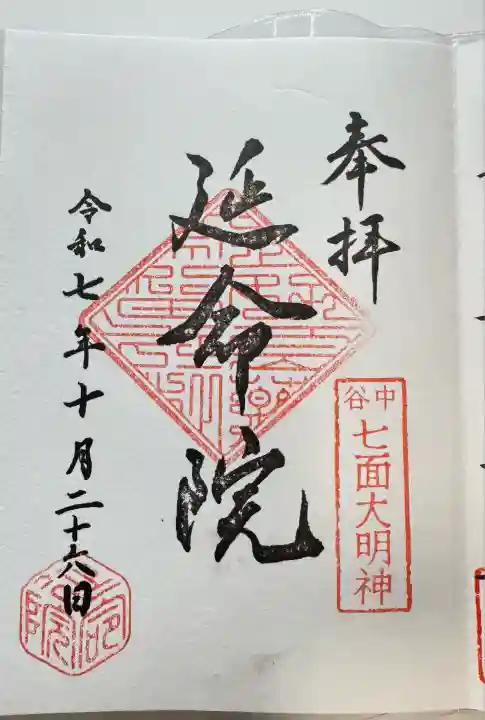 奉拝
中谷
七面大明神
延命院
令和七年十月二十六日